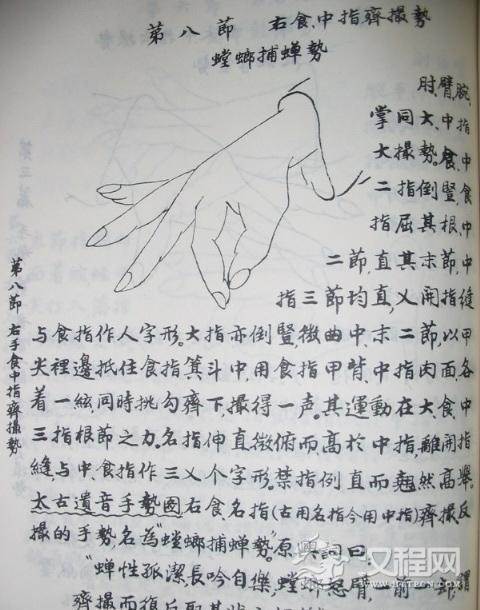 第八節 右食、中指齊撮勢
螳螂捕蝉勢
肘、臂、腕、
掌同大、中指
大撮勢。食、中
二指倒豎,中食
指屈其根、中
二節,直其末節,中
指三節均直,乂開指縫
与食指作人字形。大指亦倒豎,微曲中、末二節,以甲
尖裡邊抵住食指箕斗中,用食指甲背、中指肉面,各
着一絃,同時挑勾齊下,撮得一声。其運動在大、食、中
三指根節之力。名指伸直微俯而高於中指,離開指
縫,与中、食指作三乂个字形。禁指例直而翹然高舉。
太古遺音手勢圖右食名指(古用名指今用中指)齊撮反
撮的手勢,名為“螳螂捕蝉勢”。原興詞曰
“蝉性孤潔長吟自樂,螳螂怒臂一前一卻
齊撮而復反取其状
第八節 右手食中指齊撮勢
汉程网